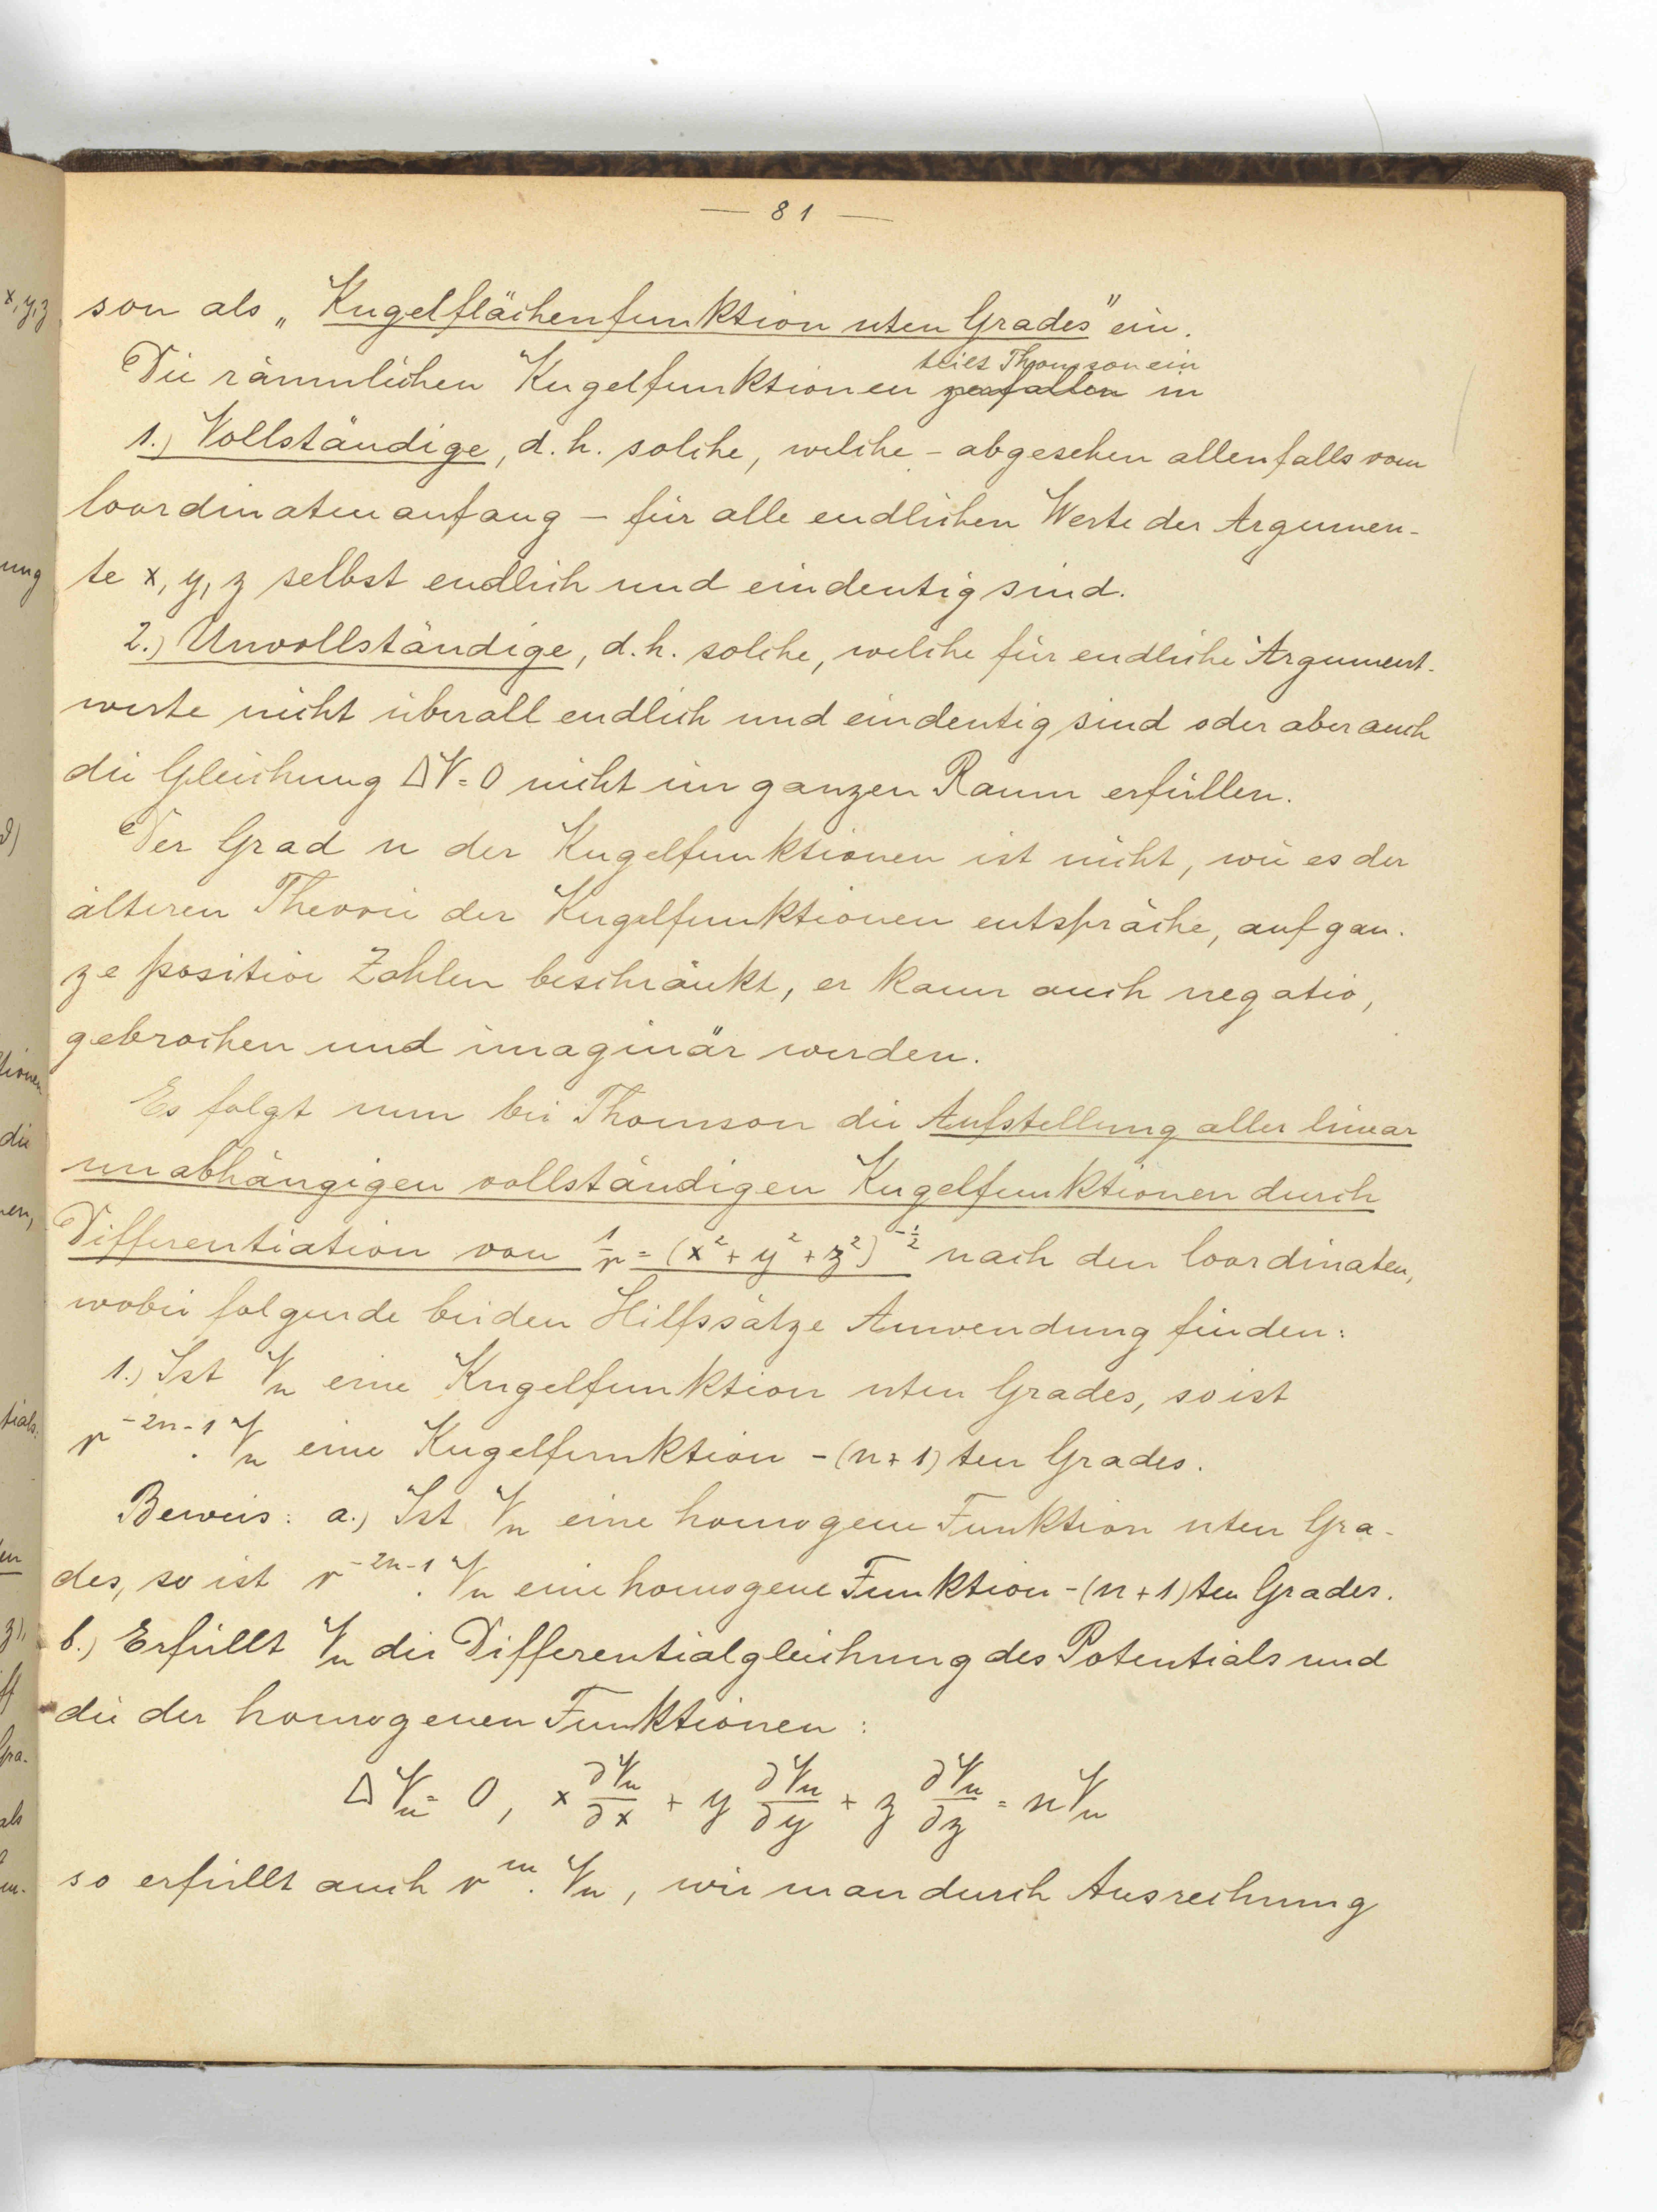 — 81 —
son als „Kugelflächenfunktion nten Grades" ein.
teilt Thomson ein
Die räumlichen Kugelfunktionen zerfallen in
1.) Vollständige, d.h. solche, welche – abgesehen allenfalls vom
Coordinatenanfang – für alle endlichen Werte der Argumen-
te x, y, z selbst endlich und eindeutig sind.
2.) Unvollständige, d.h. solche, welche für endliche Argument-
werte nicht überall endlich und eindeutig sind oder aber auch
die Gleichung ΔV = 0 nicht im ganzen Raum erfüllen.
Der Grad n der Kugelfunktionen ist nicht, wie es der
älteren Theorie der Kugelfunktionen entspräche, auf gan-
ze positive Zahlen beschränkt, er kann auch negativ,
gebrochen und imaginär werden.
Es folgt nun bei Thomson die Aufstellung aller linear
unabhängigen vollständigen Kugelfunktionen durch
Differentiation von 1/r = (x² + y² + z²)^(-1/2) nach den Coordinaten,
wobei folgende beiden Hilfssätze Anwendung finden:
1.) Ist Vₙ eine Kugelfunktion nten Grades, so ist
r^(-2n-1) · Vₙ eine Kugelfunktion -(n+1)ten Grades.
Beweis: a.) Ist Vₙ eine homogene Funktion nten Gra-
des, so ist r^(-2n-1) · Vₙ eine homogene Funktion -(n+1)ten Grades.
b.) Erfüllt Vₙ die Differentialgleichung des Potentials und
die der homogenen Funktionen:
ΔVₙ = 0, x ∂Vₙ/∂x + y ∂Vₙ/∂y + z ∂Vₙ/∂z = nVₙ
so erfüllt auch r^m · Vₙ, wie man durch Ausrechnung